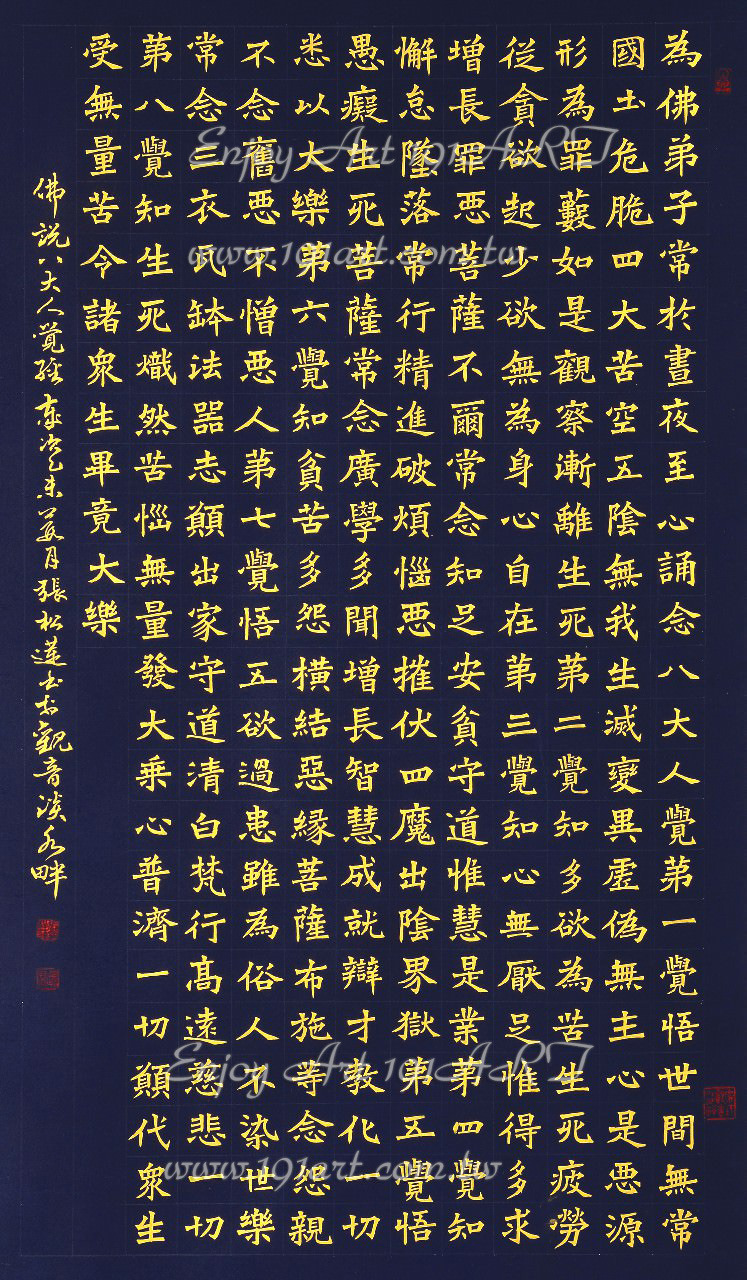 為佛弟子常於晝夜至心誦念八大人覺第一覺悟世間無常
國土危脆四大苦空五陰無我生滅變異虛偽無主心是悪源
形為罪藪如是觀察漸離生死第二覺知多欲為苦生死疲勞
從貪欲起少欲無為身心自在第三覺知心無厭足惟得多求
增長罪悪菩薩不爾常念知足安貧守道惟慧是業第四覺知
懈怠墜落常行精進破煩惱悪摧伏四魔出陰界獄第五覺悟
愚癡生死菩薩常念廣學多聞增長智慧成就辯才教化一切
悉以大樂第六覺知貧苦多怨橫結惡緣菩薩布施等念怨親
不念舊悪不憎悪人第七覺悟五欲過患雖為俗人不染世樂
常念三衣瓦缽法器志願出家守道清白梵行高遠慈悲一切
第八覺知生死熾然苦惱無量發大乘心普濟一切願代眾生
受無量苦令諸眾生畢竟大樂
佛說八大人覺經歲次乙未夏月張松蓮書於觀音溪水畔
Enjoy Art 101ART
www.101art.com.tw
Enjoy Art 101ART
www.101art.com.tw